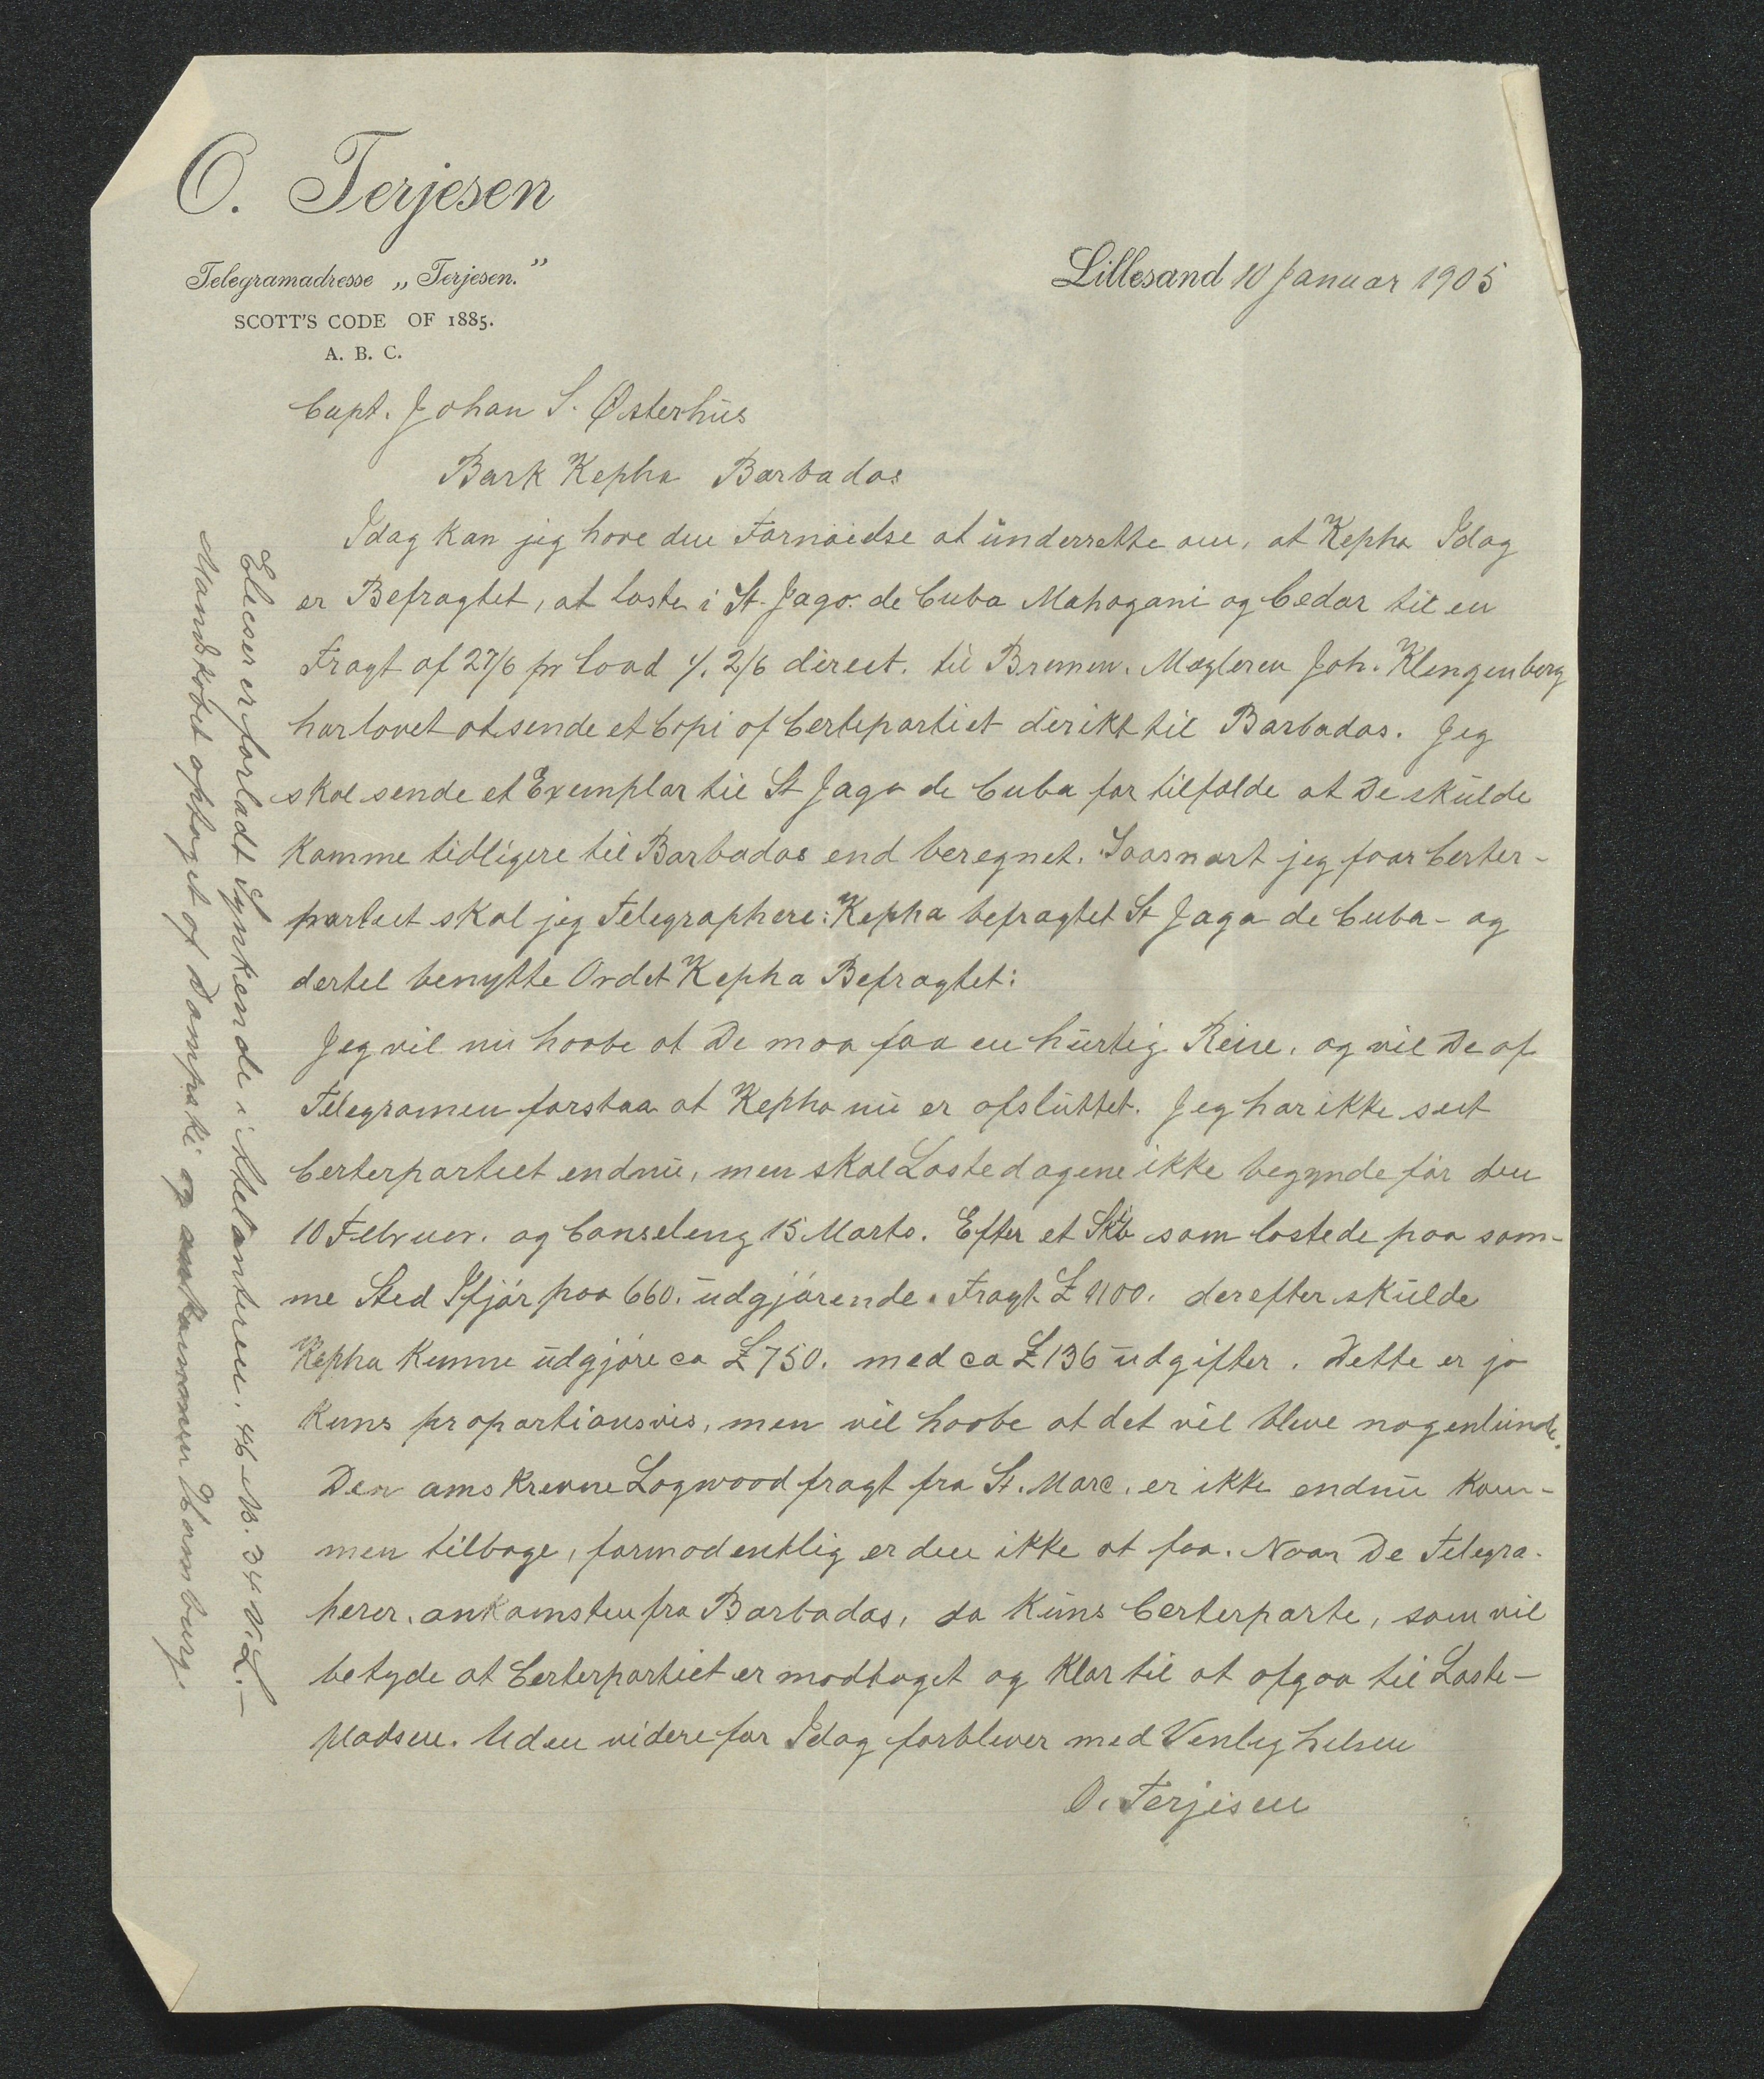 O. Terjesen
Telegramadresse „Terjesen.”
SCOTT'S CODE OF 1885.
A. B. C.
Lillesand 10 Januar 1905
Capt. Johan S. Østerhus
Bark Kepha Barbados
Idag kan jeg have den Fornøielse at underrette om, at Kepha Idag
er Befragtet, at laste i St. Jago de Cuba Mahogani og Cedar til en
Fragt af 27/6 pr Load ÷ 2/6 direct. til Bremen. Mægleren Joh. Klingenberg
har lovet at sende et Copi af Certepartiet dirikt til Barbados. Jeg
skal sende et Exemplar til St Jago de Cuba for tilfælde at De skulde
komme tidligere til Barbados end beregnet. Saasnart jeg faar Certer-
partiet skal jeg Telegraphere: Kepha befragtet St Jago de Cuba - og
dertel benytte Ordet Kepha Befragtet:
Jeg vil nu haabe at De maa faa en hurtig Reise, og vil De af
Telegramen forstaa at Kepha nu er afsluttet. Jeg har ikke seet
Certerpartiet endnu, men skal Lastedagene ikke begynde før den
10 Februar. og Canseling 15 Marts. Efter et Skib som lastede paa sam-
me Sted Ifjør paa 660. udgjørende Fragt £ 1100. derefter skulde
Kepha kunne udgjøre ca £ 750. med ca £ 136 udgifter. Dette er jo
kuns proportionsvis, men vil haabe at det vil blive nogenlunde.
Den omskrevne Logwood fragt fra St. Marc. er ikke endnu kom-
men tilbage, formodentlig er den ikke at faa. Naar De Telegra-
herer. ankomsten fra Barbados, da kuns Certerparte, som vil
betyde at Certerpartiet er modtaget og klar til at afgaa til Laste-
pladsen. Uden videre for Idag forbliver med Venlig hilsen
O. Terjesen
Elieser er forladt Synkende i Atelanteren, 46 N. B. 34 V. L. -
Mandskabet optaget af Dampski og ankommen Hamburg.